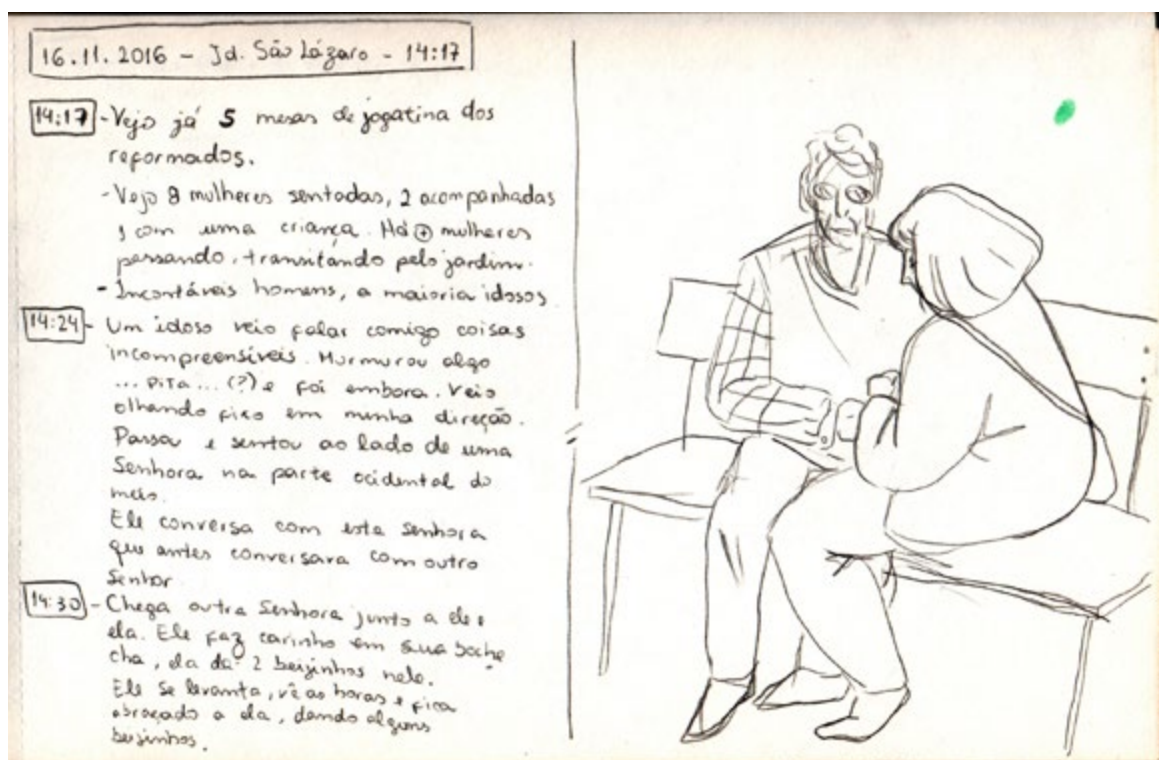 16.11.2016 - Jd. São Lázaro - 14:17
14:17 - Vejo já 5 mesas de jogatina dos
reformados.
- Vejo 8 mulheres sentadas, 2 acompanhadas
, com uma criança. Há + mulheres
passando, transitando pelo jardim.
- Incontáveis homens, a maioria idosos
14:24 - Um idoso veio falar comigo coisas
incompreensíveis. Murmurou algo
... pita ... (?) e foi embora. Veio
olhando fixo em minha direção.
Passou e sentou ao lado de uma
Senhora na parte ocidental do
meio.
Ele conversa com esta senhora
que antes conversara com outro
Senhor.
14:30 - Chega outra Senhora junto a ele e
ela. Ele faz carinho em sua boche
cha, ela dá 2 beijinhos nele.
Ele se levanta, vê as horas e fica
abraçado a ela, dando alguns
beijinhos.